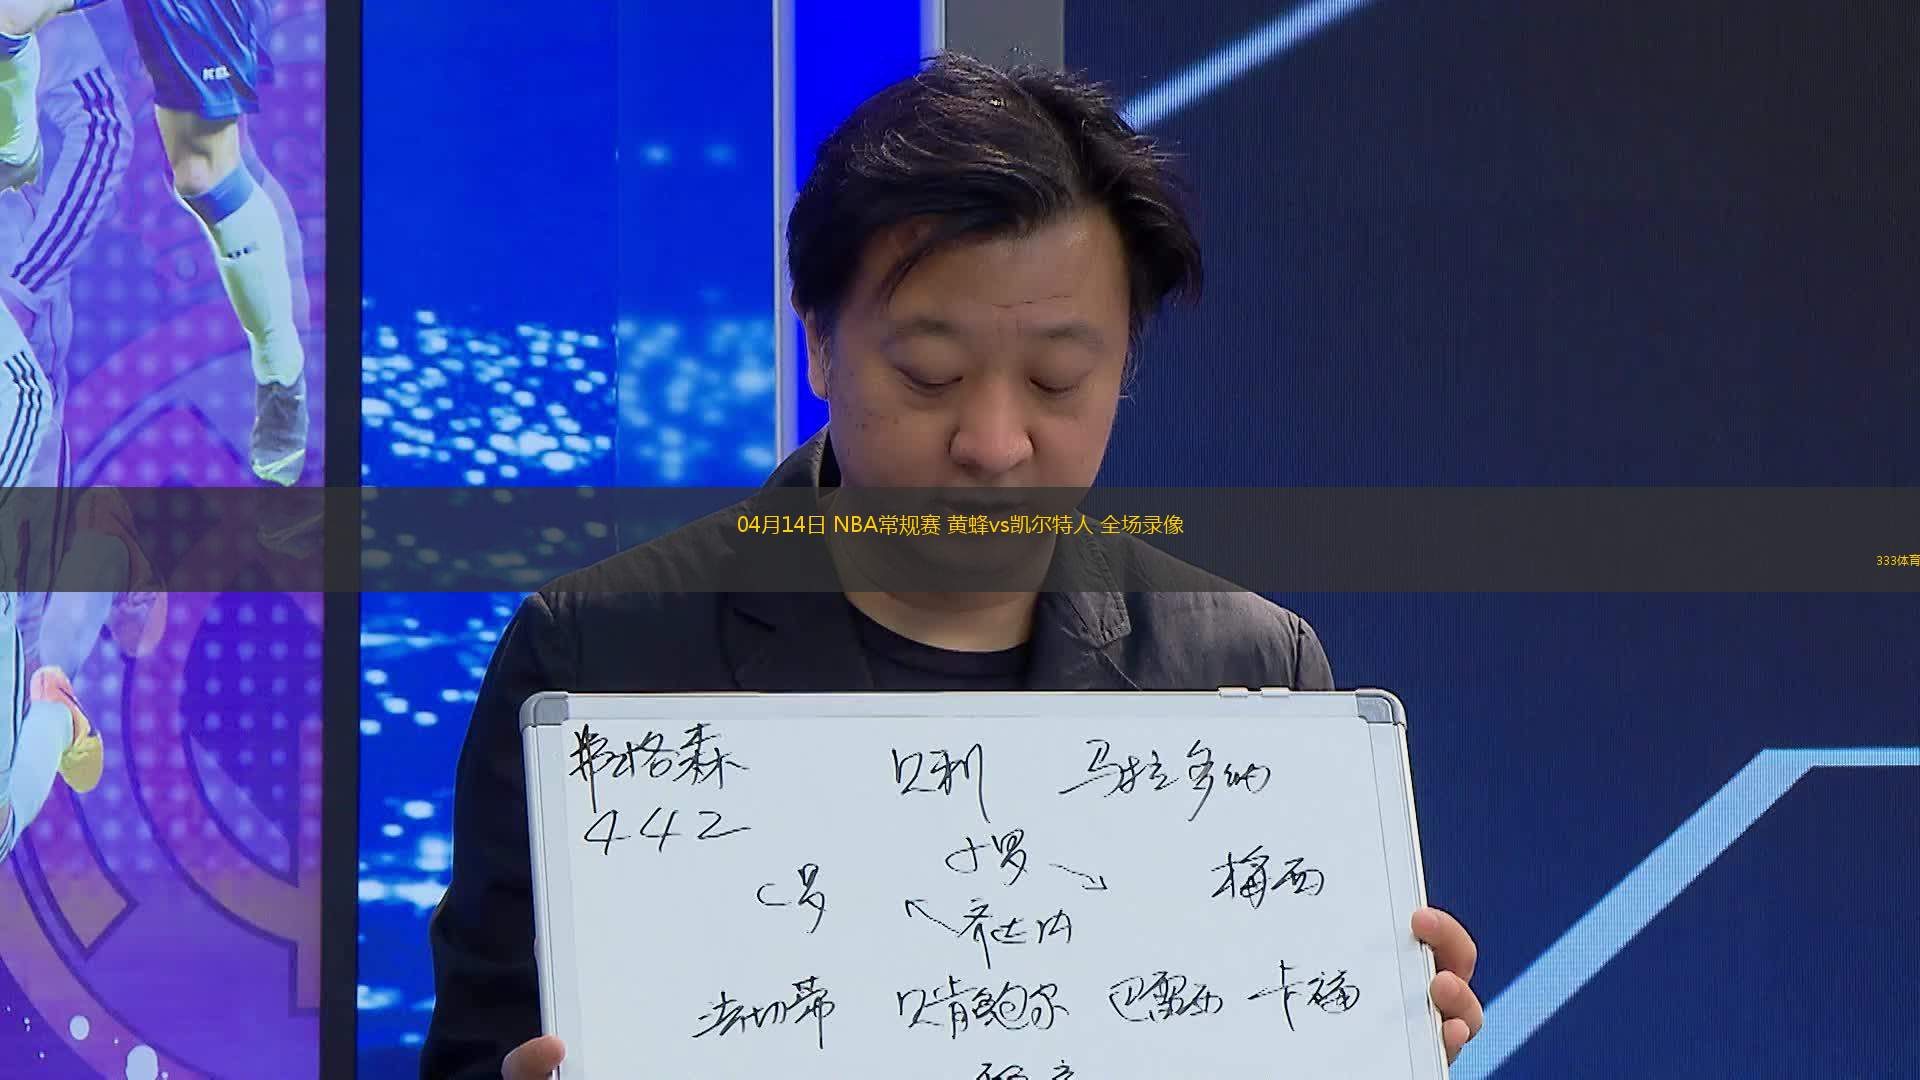 04月14日 NBA常规赛 黄蜂vs凯尔特人 全场录像
333体育
弗格森 贝利 马拉多纳
442
小罗
C罗 梅西
齐达内
法切蒂 贝肯鲍尔 巴雷西 卡福